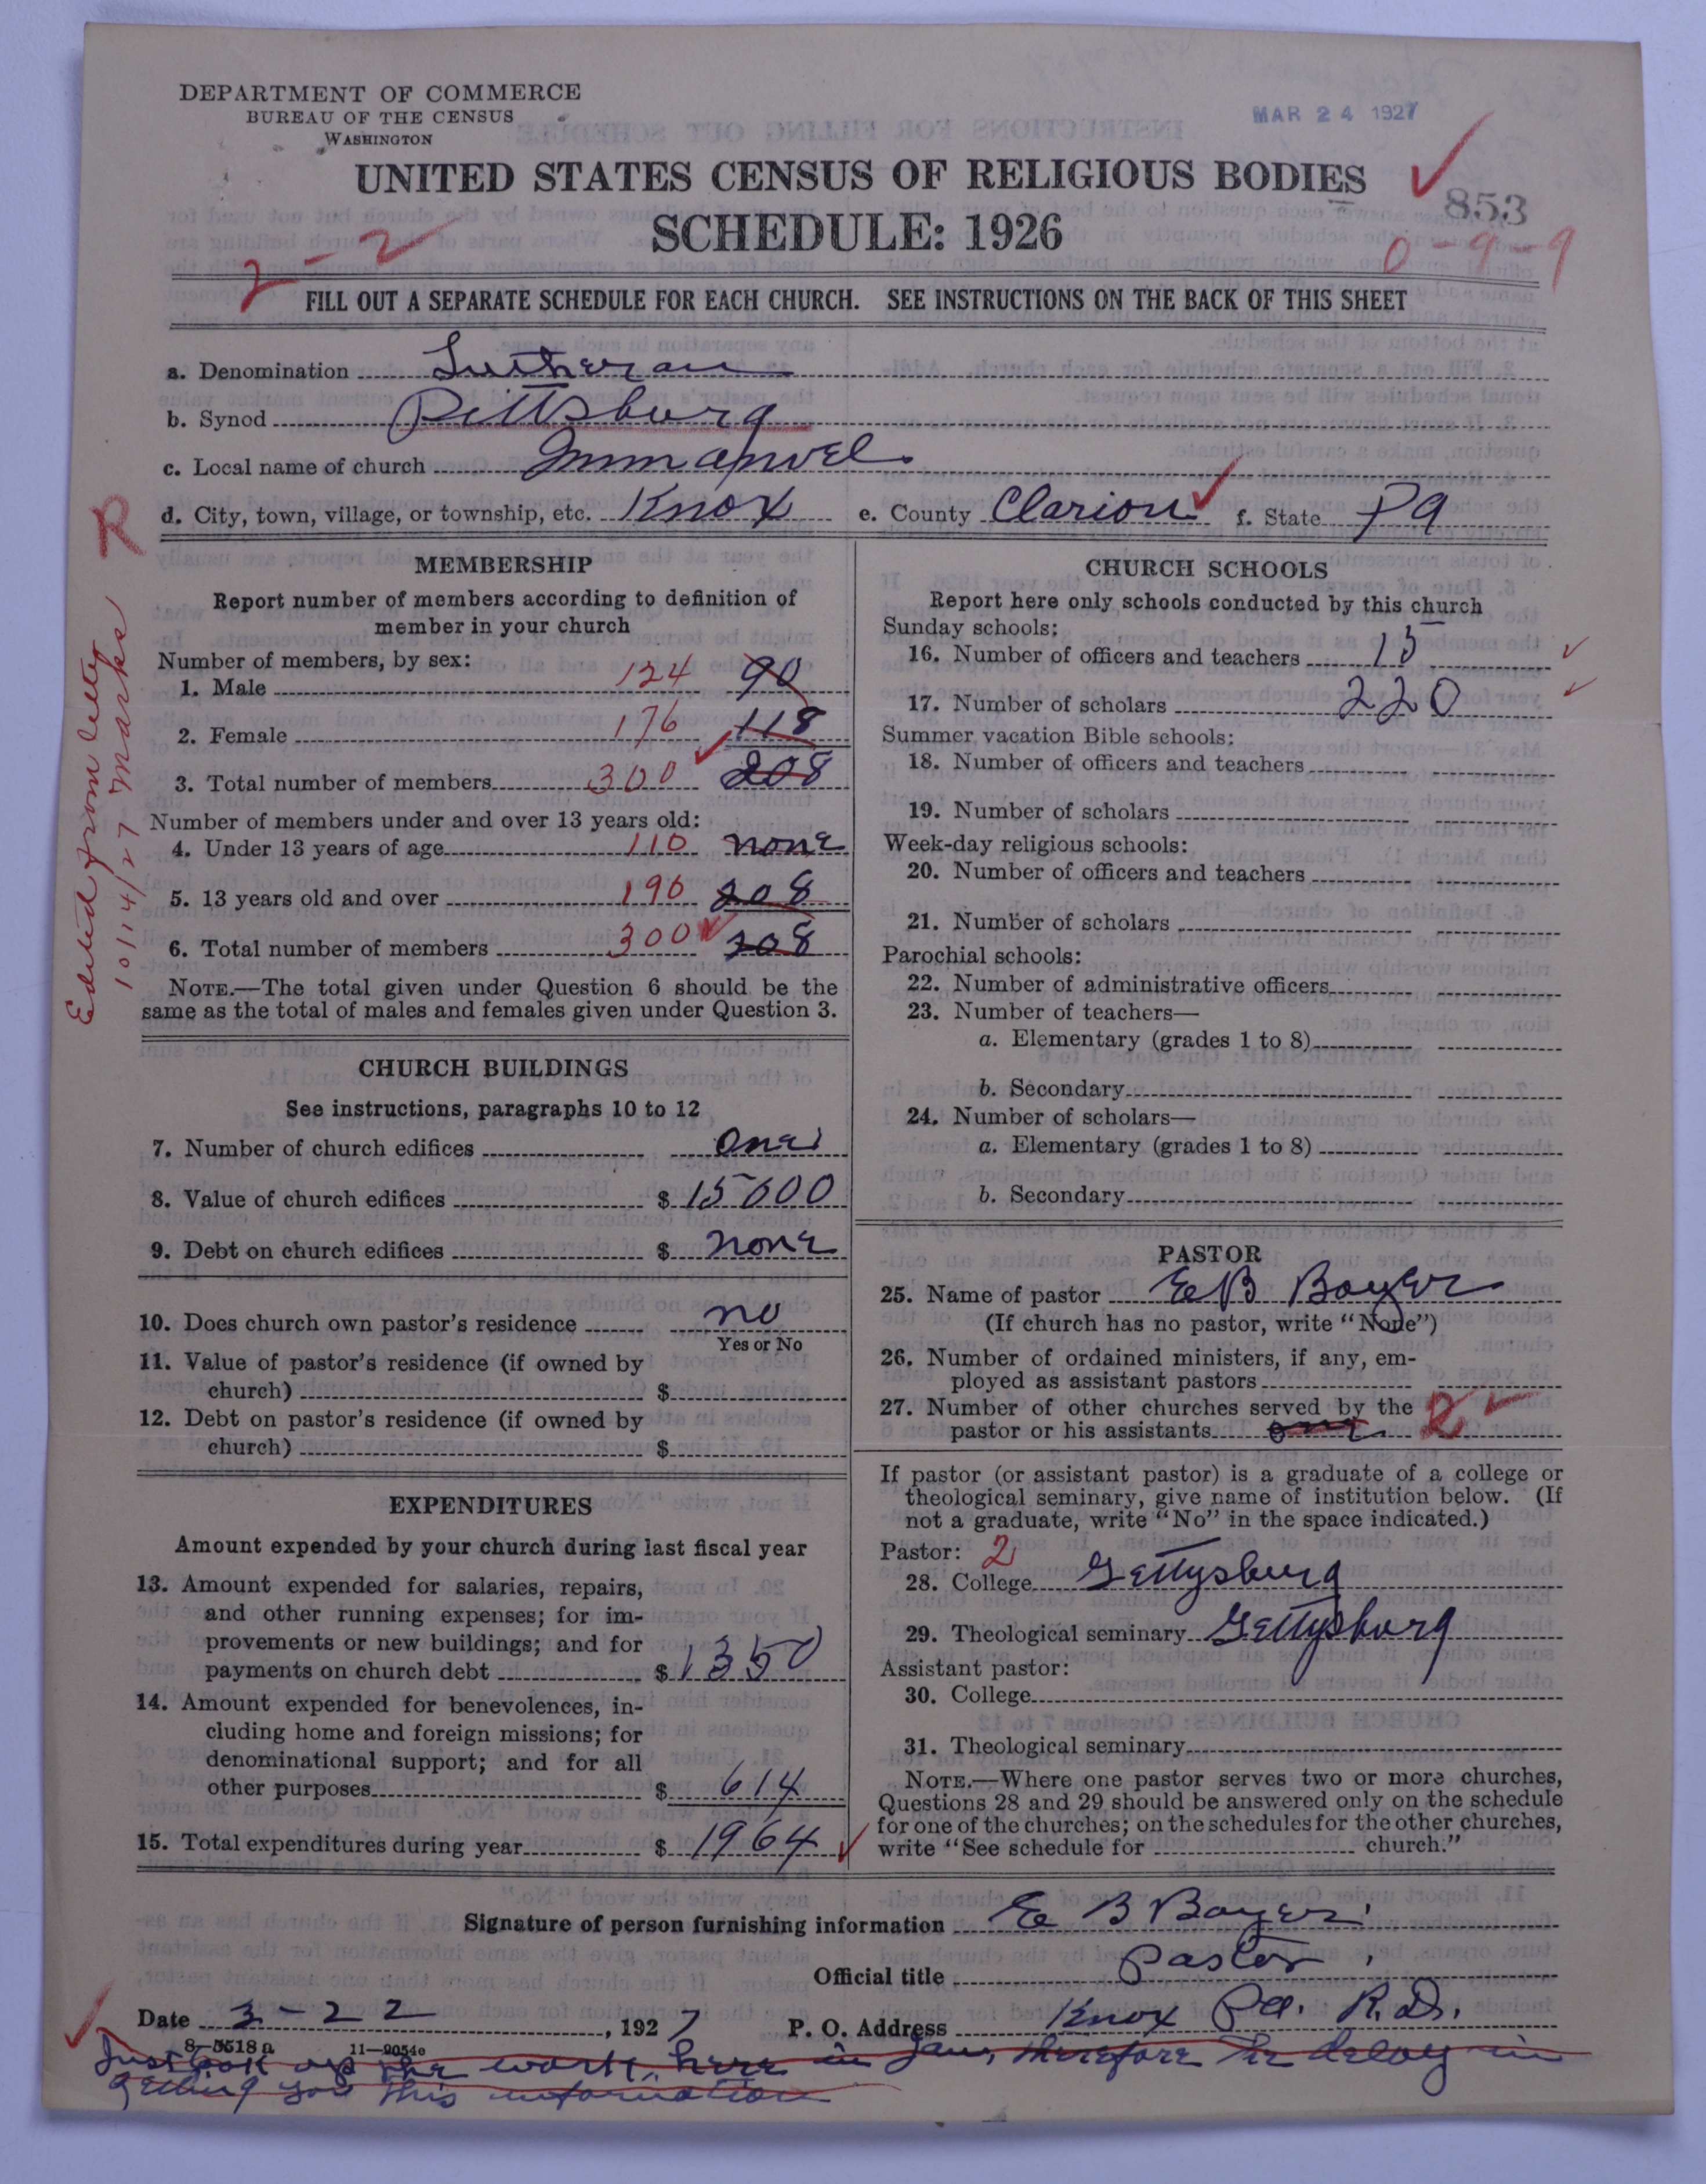 DEPARTMENT OF COMMERCE
BUREAU OF THE CENSUS
WASHINGTON
MAR 24 1927
UNITED STATES CENSUS OF RELIGIOUS BODIES
853
SCHEDULE: 1926
2-2
0-9-9
FILL OUT A SEPARATE SCHEDULE FOR EACH CHURCH. SEE INSTRUCTIONS ON THE BACK OF THIS SHEET
a. Denomination Lutheran
b. Synod Pittsburg
c. Local name of church Immanuel
d. City, town, village, or township, etc. Knox e. County Clarion f. State Pa
R
Edited from letter
10/14/27 Marks
MEMBERSHIP
Report number of members according to definition of
member in your church
Number of members, by sex:
1. Male 124 90
2. Female 176 118
3. Total number of members 300 208
Number of members under and over 13 years old:
4. Under 13 years of age 110 none
5. 13 years old and over 190 208
6. Total number of members 300 208
NOTE.—The total given under Question 6 should be the
same as the total of males and females given under Question 3.
CHURCH BUILDINGS
See instructions, paragraphs 10 to 12
7. Number of church edifices one
8. Value of church edifices $ 15000
9. Debt on church edifices $ none
10. Does church own pastor's residence no
Yes or No
11. Value of pastor's residence (if owned by
church) $
12. Debt on pastor's residence (if owned by
church) $
EXPENDITURES
Amount expended by your church during last fiscal year
13. Amount expended for salaries, repairs,
and other running expenses; for im-
provements or new buildings; and for
payments on church debt $ 1350
14. Amount expended for benevolences, in-
cluding home and foreign missions; for
denominational support; and for all
other purposes $ 614
15. Total expenditures during year $ 1964
CHURCH SCHOOLS
Report here only schools conducted by this church
Sunday schools:
16. Number of officers and teachers 15
17. Number of scholars 220
Summer vacation Bible schools:
18. Number of officers and teachers
19. Number of scholars
Week-day religious schools:
20. Number of officers and teachers
21. Number of scholars
Parochial schools:
22. Number of administrative officers
23. Number of teachers—
a. Elementary (grades 1 to 8)
b. Secondary
24. Number of scholars—
a. Elementary (grades 1 to 8)
b. Secondary
PASTOR
25. Name of pastor E B Boyer
(If church has no pastor, write "None")
26. Number of ordained ministers, if any, em-
ployed as assistant pastors
27. Number of other churches served by the
pastor or his assistants one 2
If pastor (or assistant pastor) is a graduate of a college or
theological seminary, give name of institution below. (If
not a graduate, write "No" in the space indicated.)
Pastor: 2
28. College Gettysburg
29. Theological seminary Gettysburg
Assistant pastor:
30. College
31. Theological seminary
NOTE.—Where one pastor serves two or more churches,
Questions 28 and 29 should be answered only on the schedule
for one of the churches; on the schedules for the other churches,
write "See schedule for church."
Signature of person furnishing information E B Boyer
Official title Pastor
Date 3-22, 1927 P. O. Address Knox Pa. R.D.
8-5518a 11-9054e
Just took up the work here in Jan, therefore the delay in
getting you this information